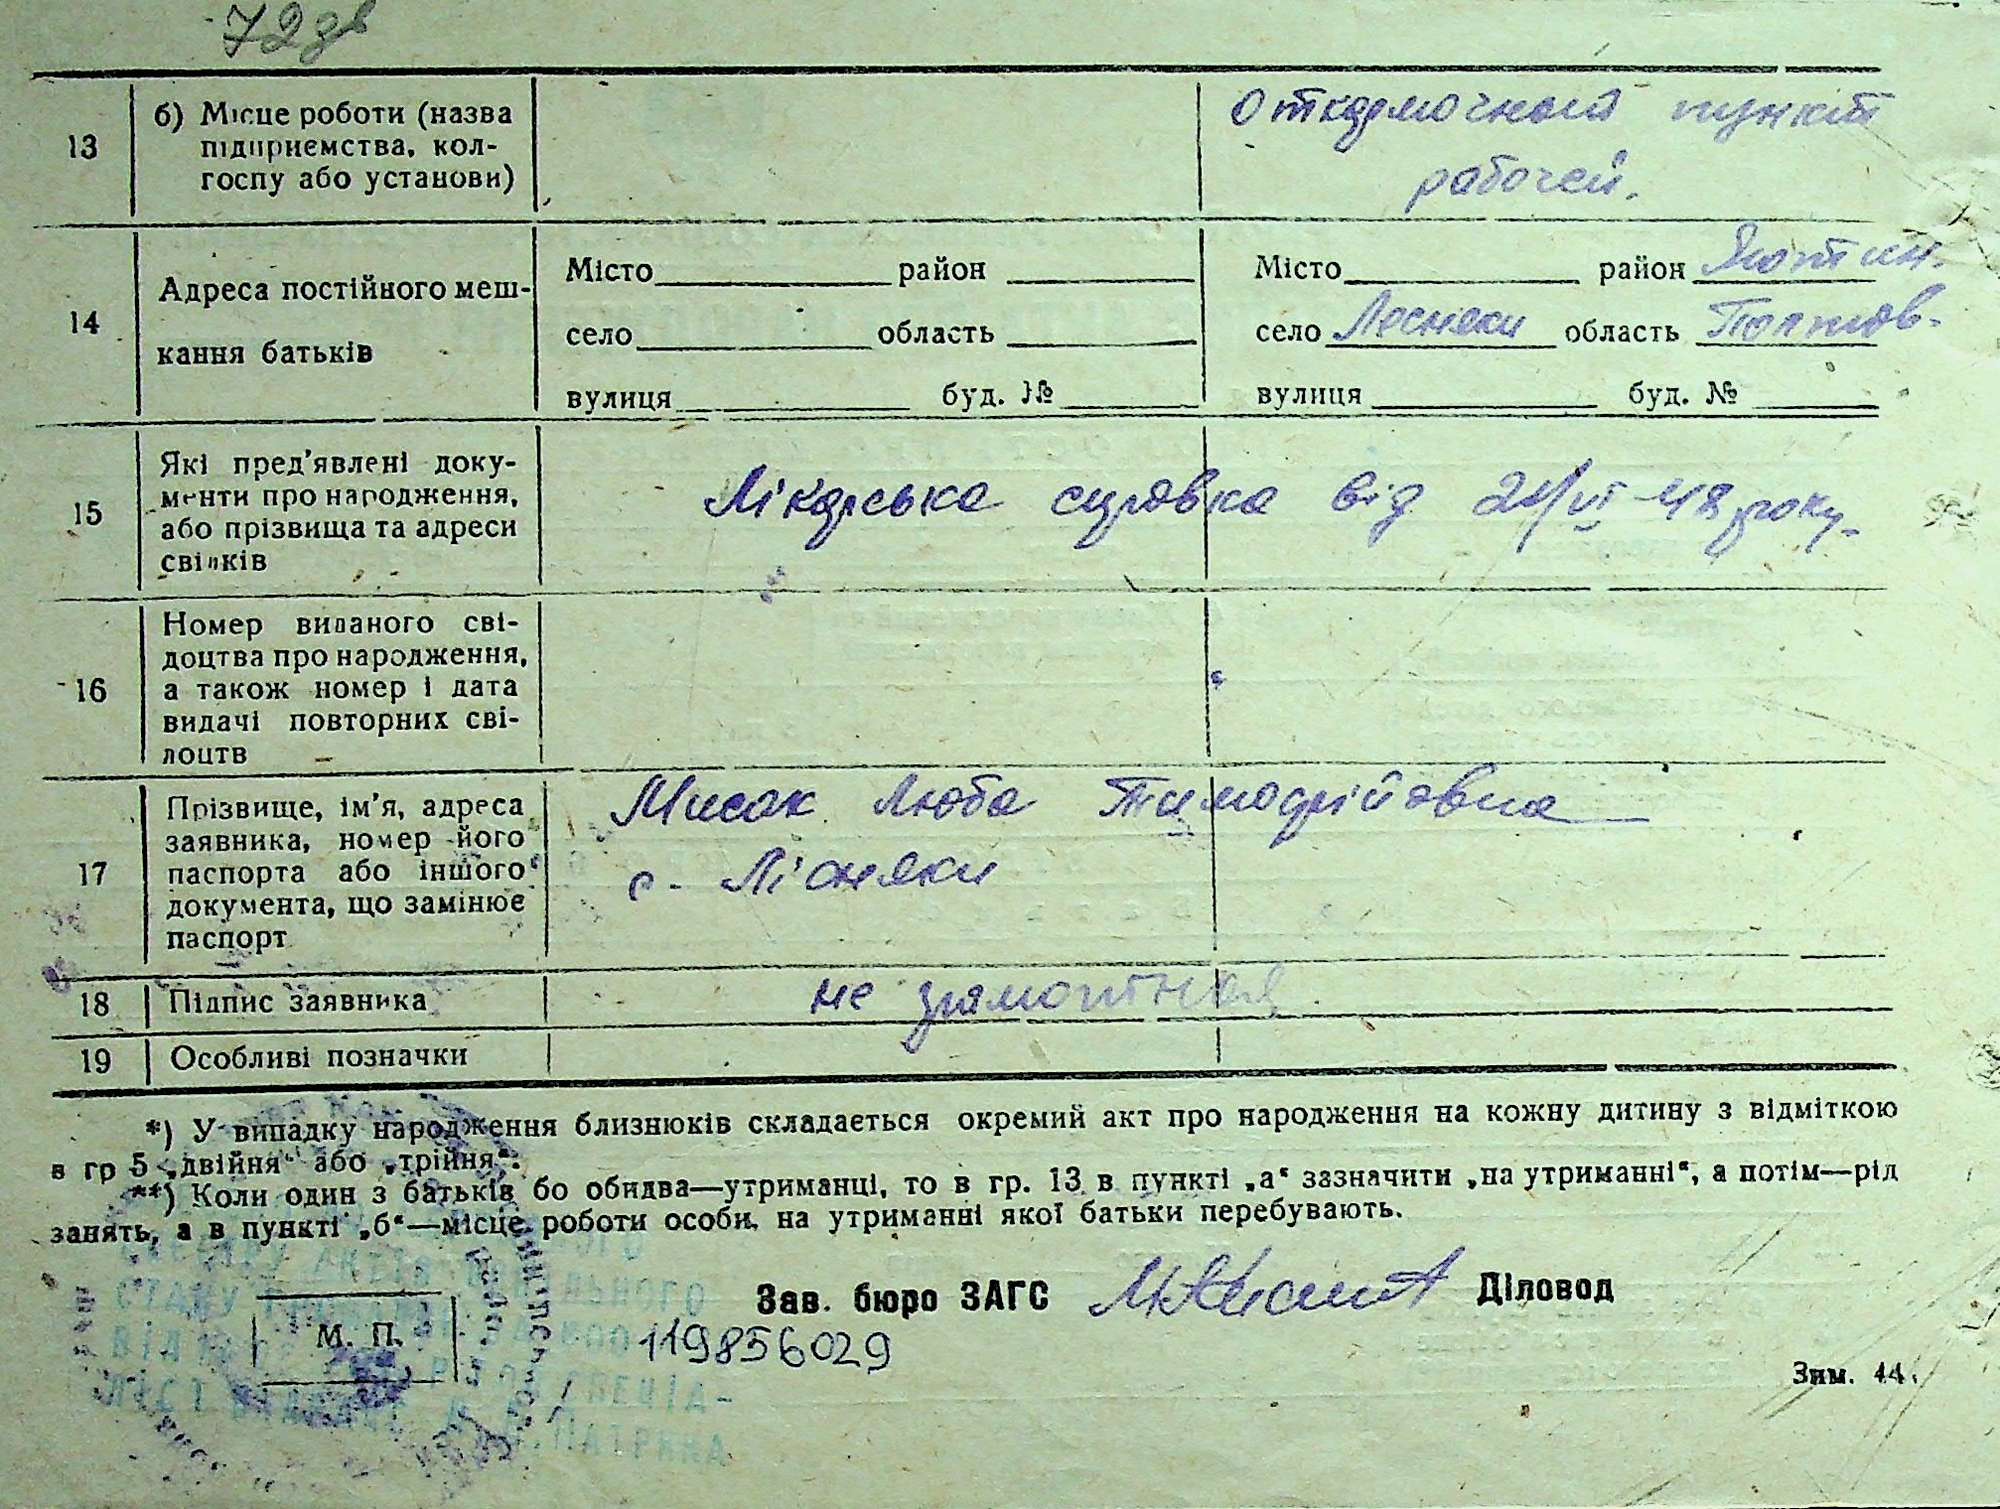 72 зв
13
б) Місце роботи (назва
підприємства, кол-
госпу або установи)
Откормочный пункт
рабочей.
14
Адреса постійного меш-
кання батьків
Місто район
село область
вулиця буд. №
Місто район Яготин.
село Лесняки область Полтав-
вулиця буд. №
15
Які пред'явлені доку-
менти про народження,
або прізвища та адреси
свідків
Лікарська справка від VI-48 року.
16
Номер виданого сві-
доцтва про народження,
а також номер і дата
видачі повторних сві-
доцтв
17
Прізвище, ім'я, адреса
заявника, номер його
паспорта або іншого
документа, що замінює
паспорт
Мисак Люба
с. Лісняки
18
Підпис заявника
не грамотная
19
Особливі позначки
*) У випадку народження близнюків складається окремий акт про народження на кожну дитину з відміткою
в гр 5 „двійня" або „трійня".
**) Коли один з батьків бо обидва—утриманці, то в гр. 13 в пункті „а" зазначити „на утриманні", а потім—рід
занять, а в пункті „б"—місце роботи особи, на утриманні якої батьки перебувають.
Зав. бюро ЗАГС
Діловод
М. П.
119856029
Зим. 44.